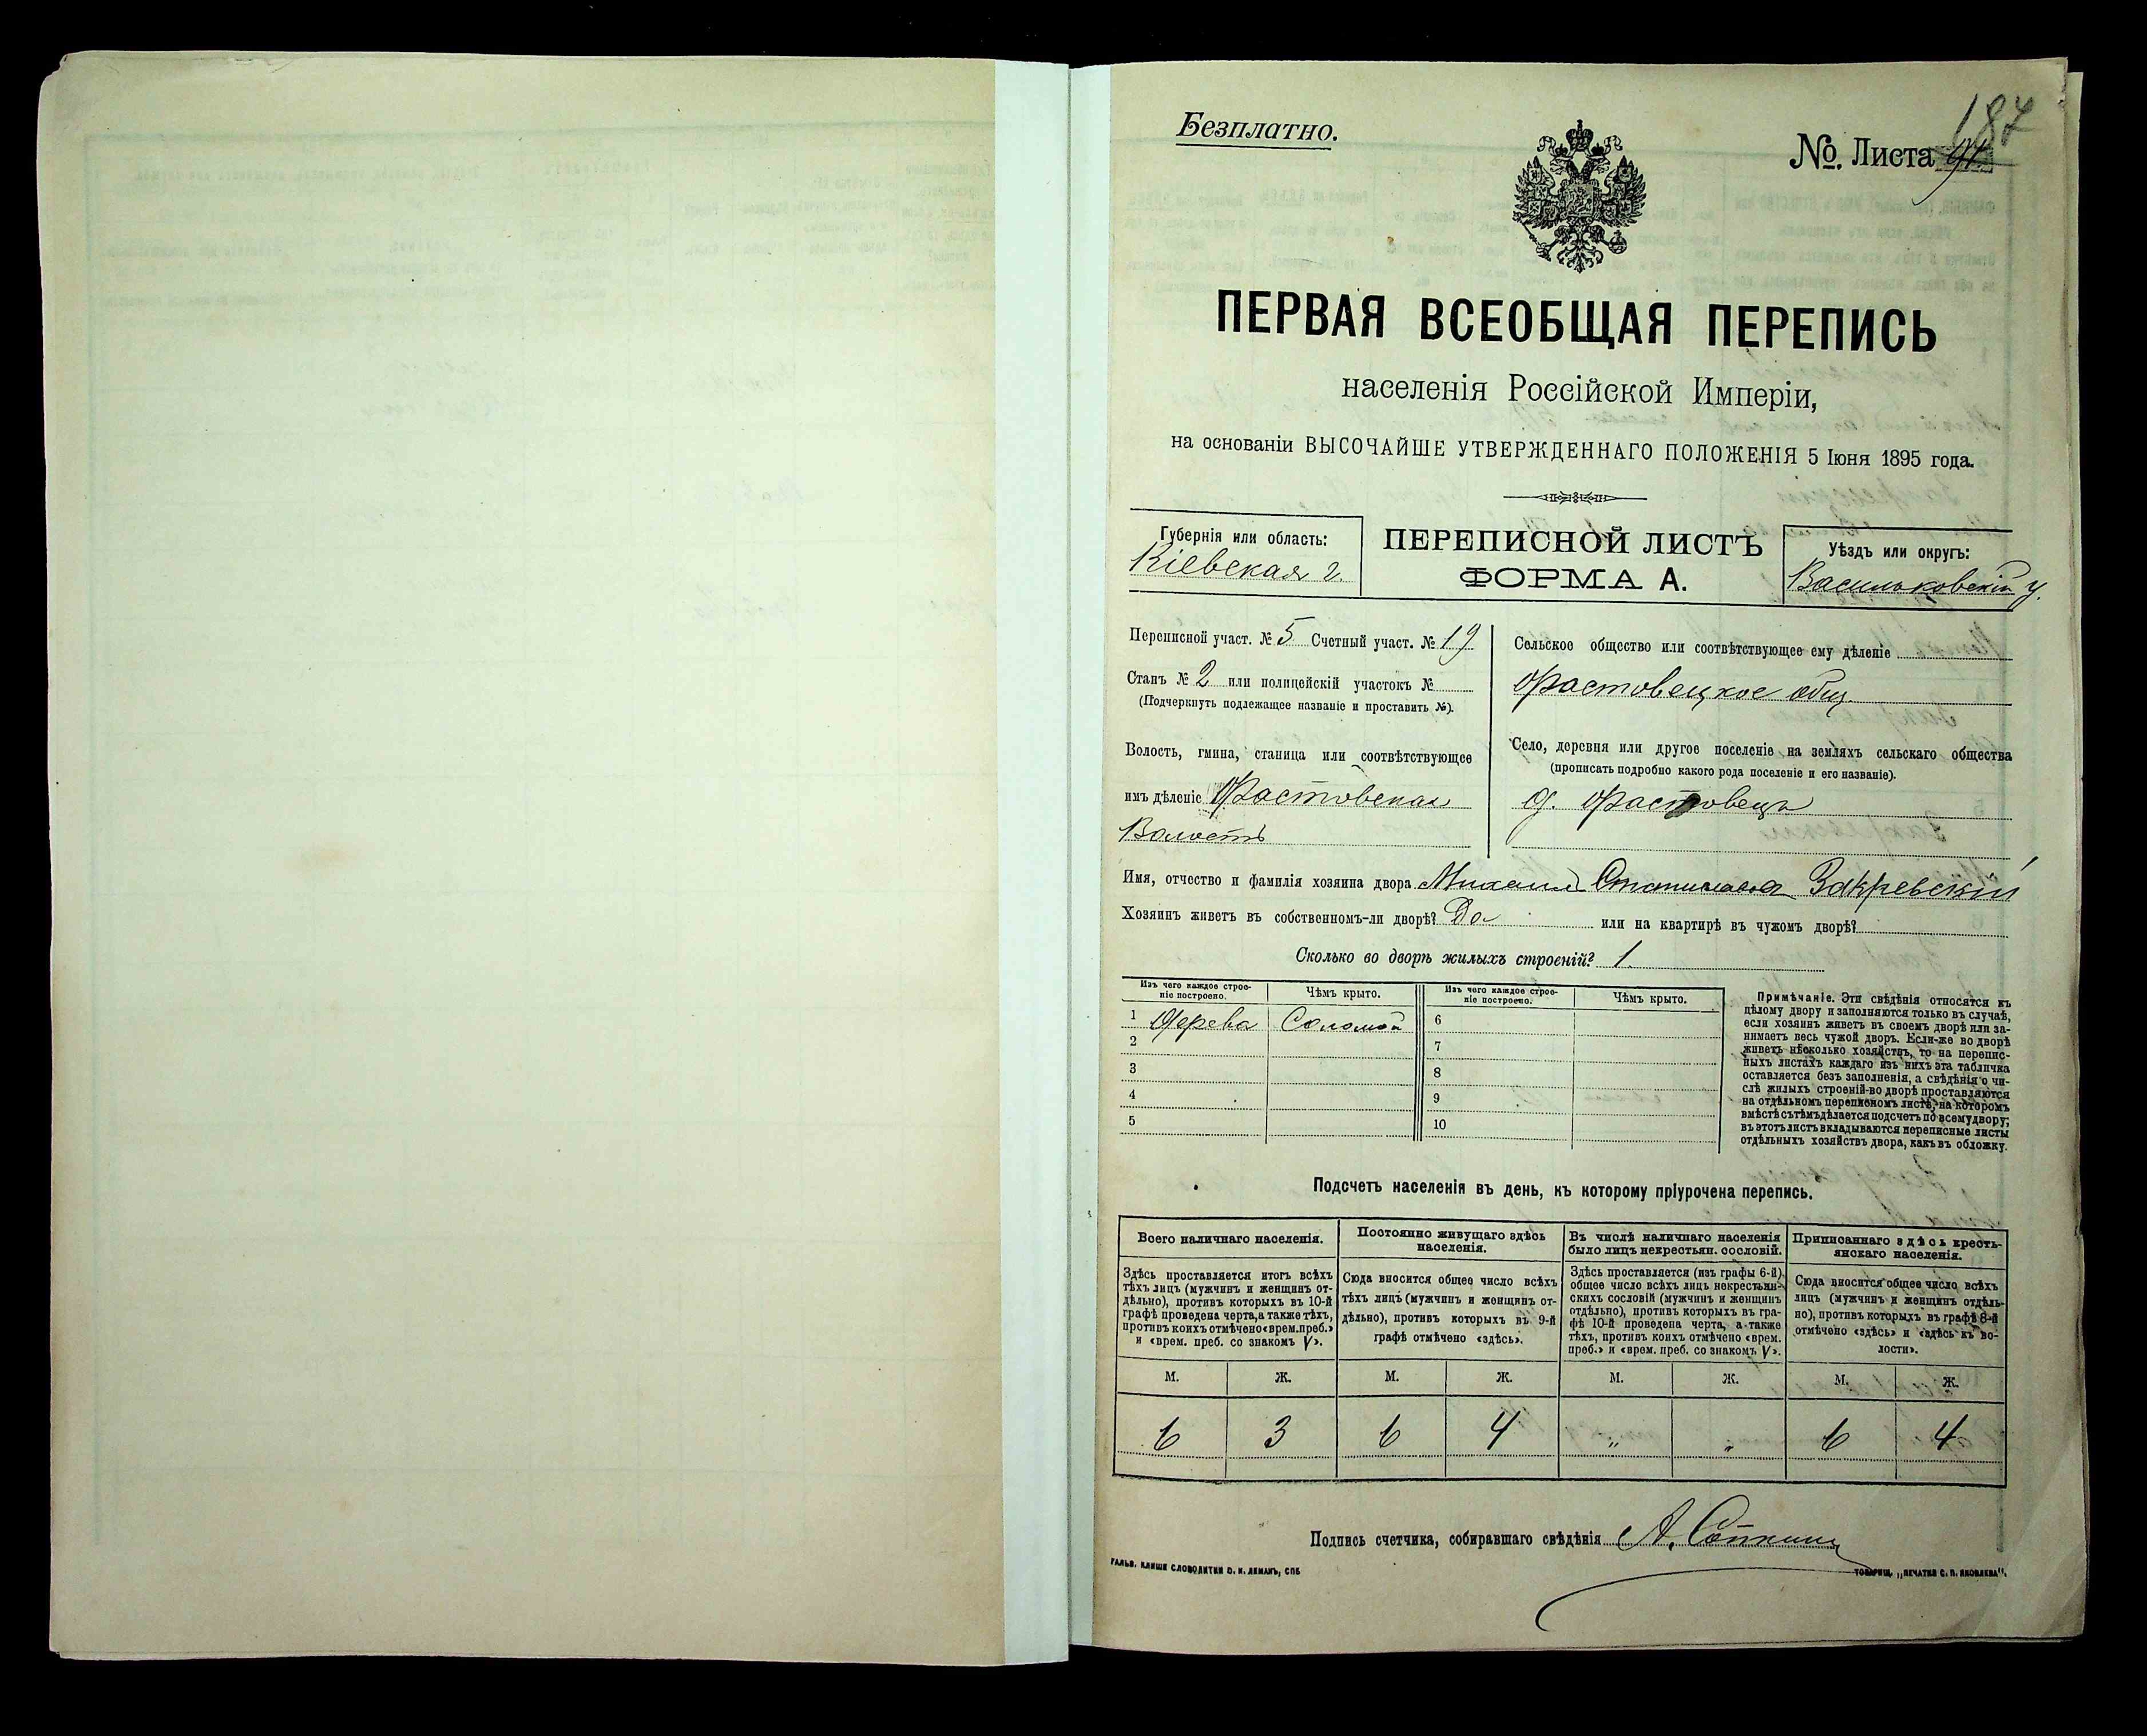 Безплатно.
187
№. Листа
ПЕРВАЯ ВСЕОБЩАЯ ПЕРЕПИСЬ
населенія Россійской Имперіи,
на основаніи ВЫСОЧАЙШЕ УТВЕРЖДЕННАГО ПОЛОЖЕНІЯ 5 Іюня 1895 года.
Губернія или область:
Кіевская г.
ПЕРЕПИСНОЙ ЛИСТЪ
ФОРМА А.
Уѣздъ или округъ:
Васильковскій у.
Переписной участ. № 5 Счетный участ. № 19
Станъ № 2 или полицейскій участокъ №
(Подчеркнуть подлежащее названіе и проставить №).
Волость, гмина, станица или соотвѣтствующее
имъ дѣленіе Фастовская
Волость
Сельское общество или соотвѣтствующее ему дѣленіе
Фастовецкое общ.
Село, деревня или другое поселеніе на земляхъ сельскаго общества
(прописать подробно какого рода поселеніе и его названіе).
д. Фастовецъ
Имя, отчество и фамилія хозяина двора Михаилъ Станиславов Закревскій
Хозяинъ живетъ въ собственномъ-ли дворѣ? Да или на квартирѣ въ чужомъ дворѣ?
Сколько во дворѣ жилыхъ строеній? 1.
Изъ чего каждое строе-
ніе построено.
Чѣмъ крыто.
Изъ чего каждое строе-
ніе построено.
Чѣмъ крыто.
1 Дерева Соломой 6
2 7
3 8
4 9
5 10
Примѣчаніе. Эти свѣдѣнія относятся къ
цѣлому двору и заполняются только въ случаѣ,
если хозяинъ живетъ въ своемъ дворѣ или за-
нимаетъ весь чужой дворъ. Если-же во дворѣ
живетъ нѣсколько хозяйствъ, то на перепис-
ныхъ листахъ каждаго изъ нихъ эта табличка
оставляется безъ заполненія, а свѣдѣнія о чи-
слѣ жилыхъ строеній во дворѣ проставляются
на отдѣльномъ переписномъ листѣ, на которомъ
вмѣстѣ съ тѣмъ дѣлается подсчетъ по всему двору;
въ этотъ листъ вкладываются переписные листы
отдѣльныхъ хозяйствъ двора, какъ въ обложку.
Подсчетъ населенія въ день, къ которому пріурочена перепись.
Всего наличнаго населенія.
Здѣсь проставляется итогъ всѣхъ
тѣхъ лицъ (мужчинъ и женщинъ от-
дѣльно), противъ которыхъ въ 10-й
графѣ проведена черта, а также тѣхъ,
противъ коихъ отмѣчено «врем. преб.»
и «врем. преб. со знакомъ V».
Постоянно живущаго здѣсь
населенія.
Сюда вносится общее число всѣхъ
тѣхъ лицъ (мужчинъ и женщинъ от-
дѣльно), противъ которыхъ въ 9-й
графѣ отмѣчено «здѣсь».
Въ числѣ наличнаго населенія
было лицъ некрестьян. сословій.
Здѣсь проставляется (изъ графы 6-й)
общее число всѣхъ лицъ некрестьян-
скихъ сословій (мужчинъ и женщинъ
отдѣльно), противъ которыхъ въ гра-
фѣ 10-й проведена черта, а также
тѣхъ, противъ коихъ отмѣчено «врем.
преб.» и «врем. преб. со знакомъ V».
Приписаннаго здѣсь кресть-
янскаго населенія.
Сюда вносится общее число всѣхъ
лицъ (мужчинъ и женщинъ отдѣль-
но), противъ которыхъ въ графѣ 8-й
отмѣчено «здѣсь» и «здѣсь къ во-
лости».
М. Ж. М. Ж. М. Ж. М. Ж.
6 3 6 4 " " 6 4
Подпись счетчика, собиравшаго свѣдѣнія А.
ГАЛЬВ. КЛИШЕ СЛОВОЛИТНИ О. И. ЛЕМАНЪ, СПБ
ТОВАРИЩ. „ПЕЧАТНЯ С. П. ЯКОВЛЕВА".